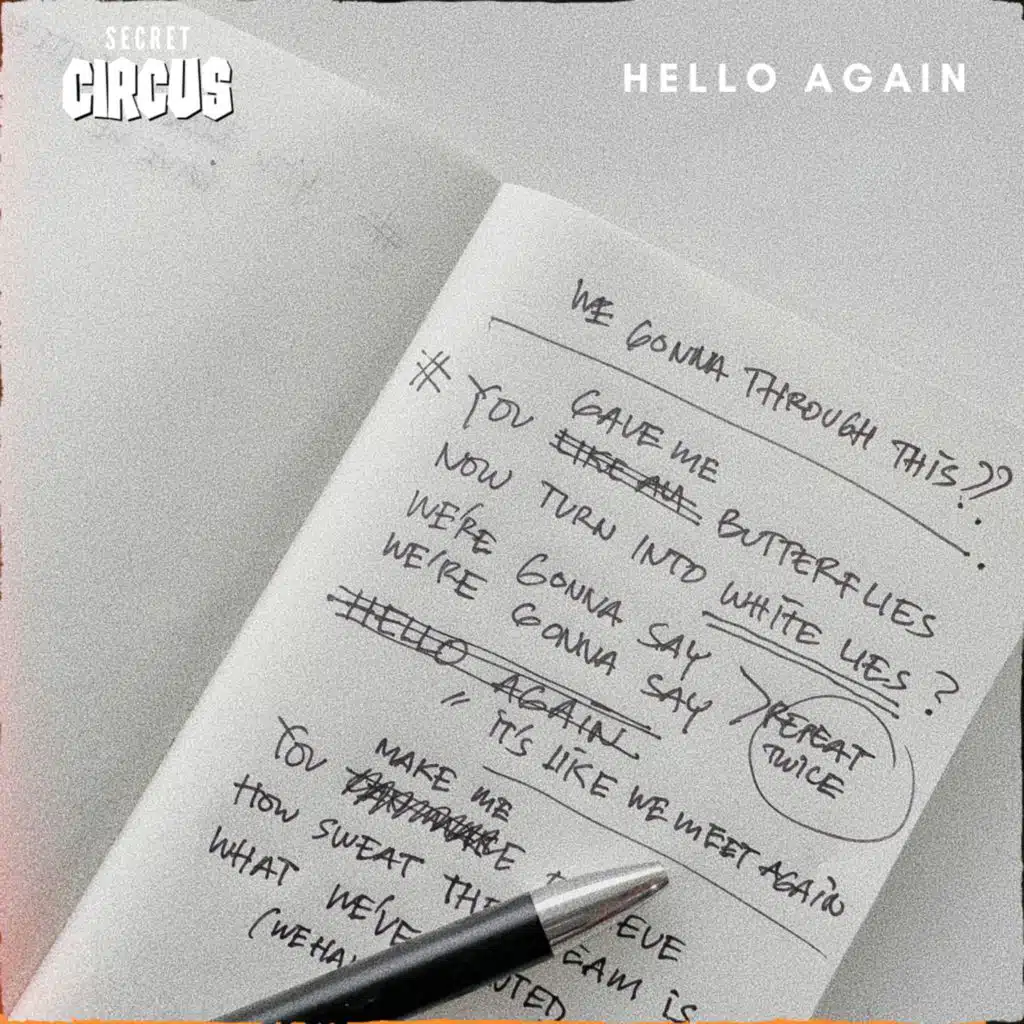 SECRET
CIRCUS
HELLO AGAIN
WE GONNA THROUGH THIS??
# YOU GAVE ME
LIKE ALL BUTTERFLIES
NOW TURN INTO WHITE LIES?
WE'RE GONNA SAY
WE'RE GONNA SAY
REPEAT
TWICE
HELLO AGAIN
" IT'S LIKE WE MEET AGAIN
YOU MAKE ME
HOW SWEAT THE EAM IS
WHAT WE'VE UTED
(WE HA